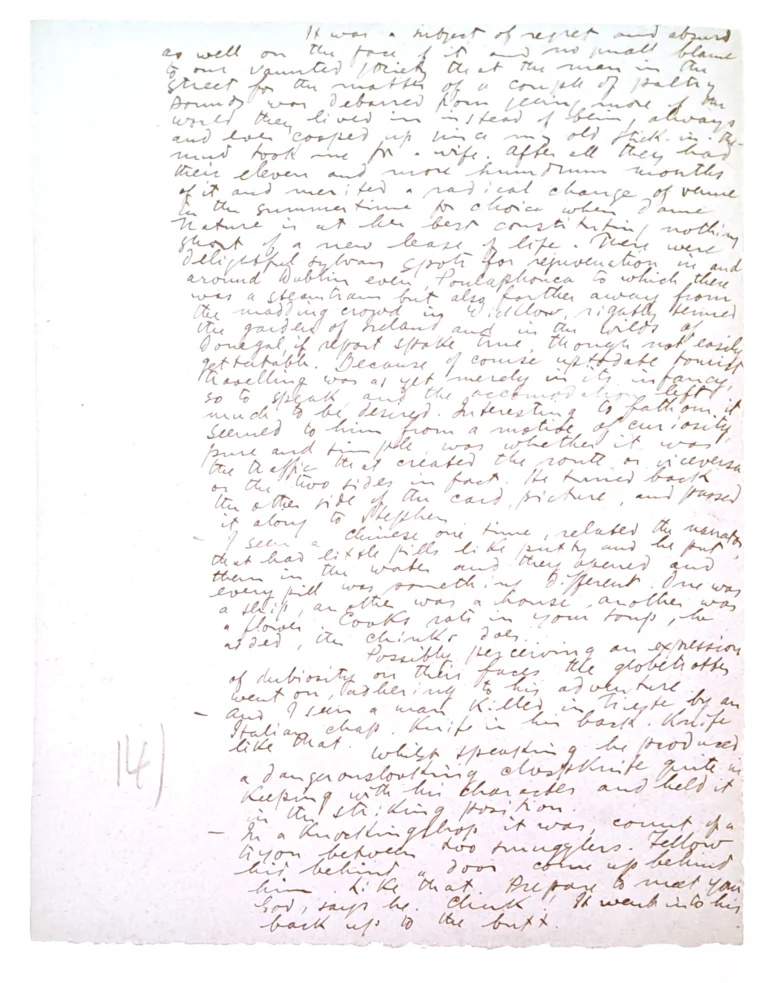 It was a subject of regret and absurd
as well on the face of it and no small blame
to our vaunted society that the man in the
street for the matter of a couple of paltry
pounds was debarred from seeing more of the
world they lived in instead of being always
and ever cooped up since my old stick-in-the-
mud took me for a wife. After all they had
their eleven and more humdrum months
of it and merited a radical change of venue
in the summertime for choice when dame
Nature is at her best constituting nothing
short of a new lease of life. There were
delightful sylvan spots for rejuvenation in and
around Dublin even, Poulaphouca to which there
was a steamtram but also farther away from
the madding crowd in Wicklow, rightly termed
the garden of Ireland and in the wilds of
Donegal, if report spoke true, though not easily
getatable. Because of course uptodate tourist
travelling was as yet merely in its infancy,
so to speak, and the accomodation left
much to be desired. Interesting to fathom, it
seemed to him from a motive of curiosity
pure and simple, was whether it was
the traffic that created the route or viceversa
or the two sides in fact. He turned back
the other side of the card, picture, and passed
it along to Stephen.
– I seen a Chinese one time, related the narrator,
that had little pills like putty and he put
them in the water and they opened and
every pill was something different. One was
a ship, another was a house, another was
a flower. Cooks rats in your soup, he
added, the chinks does.
Possibly perceiving an expression
of dubiosity on their faces the globetrotter
went on, adhering to his adventures.
– And I seen a man killed in Trieste by an
Italian chap. Knife in his back. Knife
like that.
Whilst speaking he produced
a dangerouslooking claspknife quite in
keeping with his character and held it
in the striking position.
– In a knockingshop it was, count of a
tryon between two smugglers. Fellow
hid behind a door come up behind
him. Like that. Prepare to meet your
God, says he. Chuk! It went into his
back up to the butt.
14)